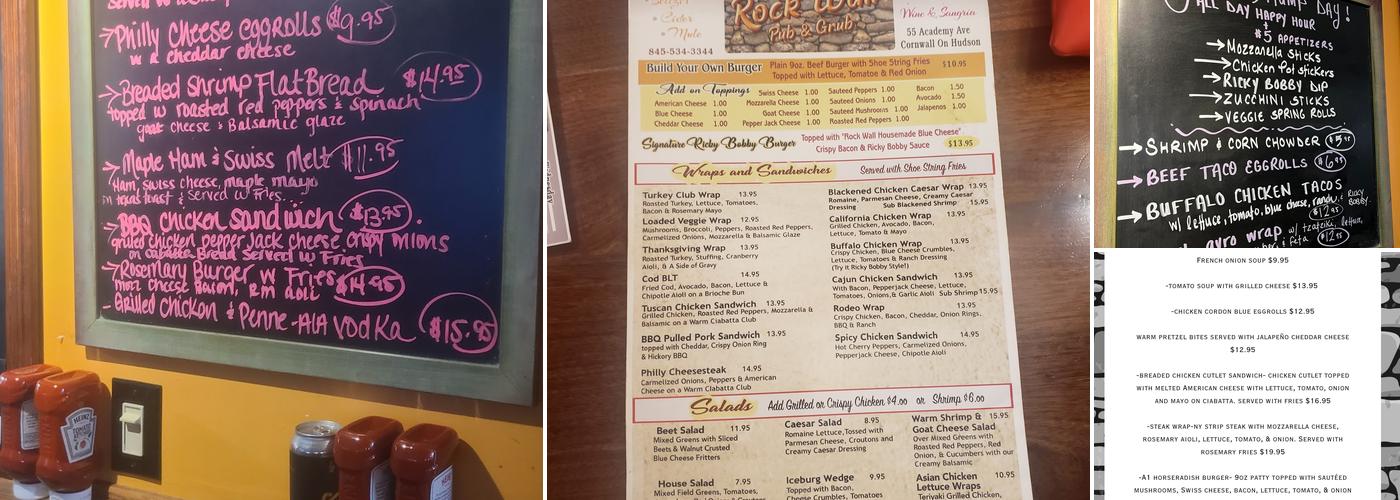 Philly Cheese eggrolls $9.95
w cheddar cheese
Breaded shrimp FlatBread $14.95
topped w roasted red peppers & spinach
goat cheese & Balsamic glaze
Maple Ham & Swiss Melt $11.95
Ham, swiss cheese, maple mayo
in texas toast & served w Fries.
BBQ chicken sandwich $13.95
grilled chicken pepper Jack cheese crispy onions
on ciabatta Bread served w Fries
Rosemary Burger w Fries $14.95
mozz cheese Bacon, RM aioli
Grilled Chicken & Penne -Ala Vodka $15.95
HEINZ
Cider
Mule
845-534-3344
Rock Wall
Pub & Grub
Wine & Sangria
55 Academy Ave
Cornwall On Hudson
Build Your Own Burger Plain 9oz. Beef Burger with Shoe String Fries $10.95
Topped with Lettuce, Tomatoe & Red Onion
Add on Toppings
American Cheese 1.00
Blue Cheese 1.00
Cheddar Cheese 1.00
Swiss Cheese 1.00
Mozzarella Cheese 1.00
Goat Cheese 1.00
Pepper Jack Cheese 1.00
Sauteed Peppers 1.00
Sauteed Onions 1.00
Sauteed Mushrooms 1.00
Roasted Red Peppers 1.00
Bacon 1.50
Avocado 1.50
Jalapenos 1.00
Signature Ricky Bobby Burger Topped with "Rock Wall Housemade Blue Cheese"
Crispy Bacon & Ricky Bobby Sauce $13.95
Wraps and Sandwiches Served with Shoe String Fries
Turkey Club Wrap 13.95
Roasted Turkey, Lettuce, Tomatoes,
Bacon & Rosemary Mayo
Loaded Veggie Wrap 12.95
Mushrooms, Broccoli, Peppers, Roasted Red Peppers,
Carmelized Onions, Mozzarella & Balsamic Glaze
Thanksgiving Wrap 13.95
Roasted Turkey, Stuffing, Cranberry
Aioli, & A Side of Gravy
Cod BLT 14.95
Fried Cod, Avocado, Bacon, Lettuce &
Chipotle Aioli on a Brioche Bun
Tuscan Chicken Sandwich 13.95
Grilled Chicken, Roasted Red Peppers, Mozzarella &
Balsamic on a Warm Ciabatta Club
BBQ Pulled Pork Sandwich 13.95
topped with Cheddar, Crispy Onion Ring
& Hickory BBQ
Philly Cheesesteak 14.95
Carmelized Onions, Peppers & American
Cheese on a Warm Ciabatta Club
Blackened Chicken Caesar Wrap 13.95
Romaine, Parmesan Cheese, Creamy Caesar
Dressing Sub Blackened Shrimp 15.95
California Chicken Wrap 13.95
Grilled Chicken, Avocado, Bacon,
Lettuce, Tomato & Mayo
Buffalo Chicken Wrap 13.95
Crispy Chicken, Blue Cheese Crumbles,
Lettuce, Tomatoes & Ranch Dressing
(Try It Ricky Bobby Style!)
Cajun Chicken Sandwich 13.95
With Bacon, Pepperjack Cheese, Lettuce,
Tomatoes, Onions,& Garlic Aioli Sub Shrimp 15.95
Rodeo Wrap 13.95
Crispy Chicken, Bacon, Cheddar, Onion Rings,
BBQ & Ranch
Spicy Chicken Sandwich 14.95
Hot Cherry Peppers, Carmelized Onions,
Pepperjack Cheese, Chipotle Aioli
Salads Add Grilled or Crispy Chicken $4.00 or Shrimp $6.00
Beet Salad 11.95
Mixed Greens with Sliced
Beets & Walnut Crusted
Blue Cheese Fritters
House Salad 7.95
Mixed Field Greens, Tomatoes,
Caesar Salad 8.95
Romaine Lettuce,Tossed with
Parmesan Cheese, Croutons and
Creamy Caesar Dressing
Iceberg Wedge 9.95
Topped with Bacon,
Cheese Crumbles, Tomatoes
Warm Shrimp & 15.95
Goat Cheese Salad
Over Mixed Greens with
Roasted Red Peppers, Red
Onion, & Cucumbers with our
Creamy Balsamic
Asian Chicken 10.95
Lettuce Wraps
Teriyaki Grilled Chicken,
DAY!
ALL DAY HAPPY HOUR
$5 APPETIZERS
Mozzarella Sticks
Chicken Pot stickers
RICKY BOBBY DIP
ZUCCHINI STICKS
VEGGIE SPRING ROLLS
SHRIMP & CORN CHOWDER $5.95
BEEF TACO EGGROLLS $6.95
BUFFALO CHICKEN TACOS
w/ lettuce, tomato, blue cheese, ranch, & RICKY BOBBY.
$12.95
gyro wrap w/ tzatziki, lettuce,
& feta $12.95
FRENCH ONION SOUP $9.95
-TOMATO SOUP WITH GRILLED CHEESE $13.95
-CHICKEN CORDON BLUE EGGROLLS $12.95
WARM PRETZEL BITES SERVED WITH JALAPEÑO CHEDDAR CHEESE
$12.95
-BREADED CHICKEN CUTLET SANDWICH- CHICKEN CUTLET TOPPED
WITH MELTED AMERICAN CHEESE WITH LETTUCE, TOMATO, ONION
AND MAYO ON CIABATTA. SERVED WITH FRIES $16.95
-STEAK WRAP-NY STRIP STEAK WITH MOZZARELLA CHEESE,
ROSEMARY AIOLI, LETTUCE, TOMATO, & ONION. SERVED WITH
ROSEMARY FRIES $19.95
-A1 HORSERADISH BURGER- 9OZ PATTY TOPPED WITH SAUTÉED
MUSHROOMS, SWISS CHEESE, BACON, LETTUCE, TOMATO, & ONION